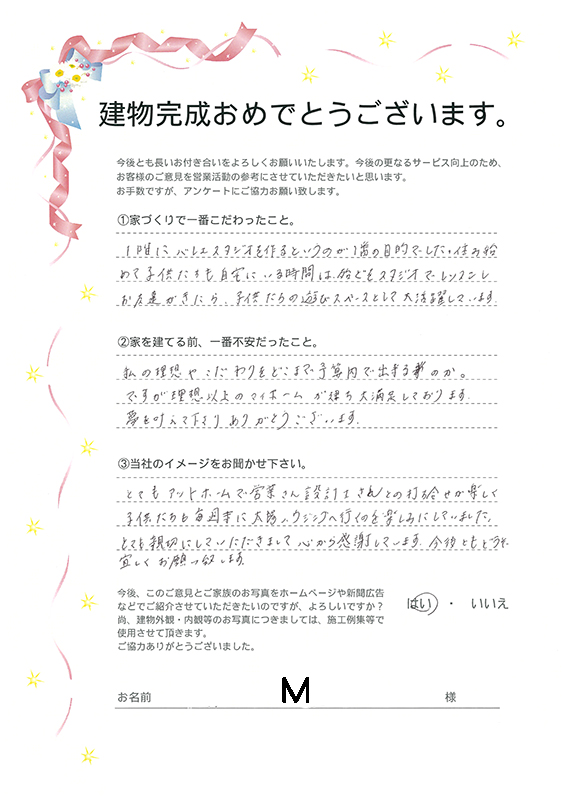 建物完成おめでとうございます。
今後とも長いお付き合いをよろしくお願いいたします。今後の更なるサービス向上のため、
お客様のご意見を営業活動の参考にさせていただきたいと思います。
お手数ですが、アンケートにご協力お願い致します。
①家づくりで一番こだわったこと。
1階に、バレエスタジオを作るというのが1番の目的でした。住み始
めて子供たちも自宅にいる時間は、殆どもスタジオでレッスンし
お友達がきたら、子供たちの遊びスペースとして大活躍しています。
②家を建てる前、一番不安だったこと。
私の理想やこだわりをどこまで予算内で出来るのか。
ですが理想以上のマイホームが建ち大満足しております。
夢を叶えて下さりありがとうございます。
③当社のイメージをお聞かせ下さい。
とてもアットホームで営業さん設計士さんとの打合せが楽しく
子供たちも毎週末に大陽ハウジングへ行くのを楽しみにしていました。
とても親切にしていただきまして心から感謝しています。今後ともどうぞ
宜しくお願い致します。
今後、このご意見とご家族のお写真をホームページや新聞広告
などでご紹介させていただきたいのですが、よろしいですか？
はい ・ いいえ
尚、建物外観・内観等のお写真につきましては、施工例集等で
使用させて頂きます。
ご協力ありがとうございました。
お名前 M 様